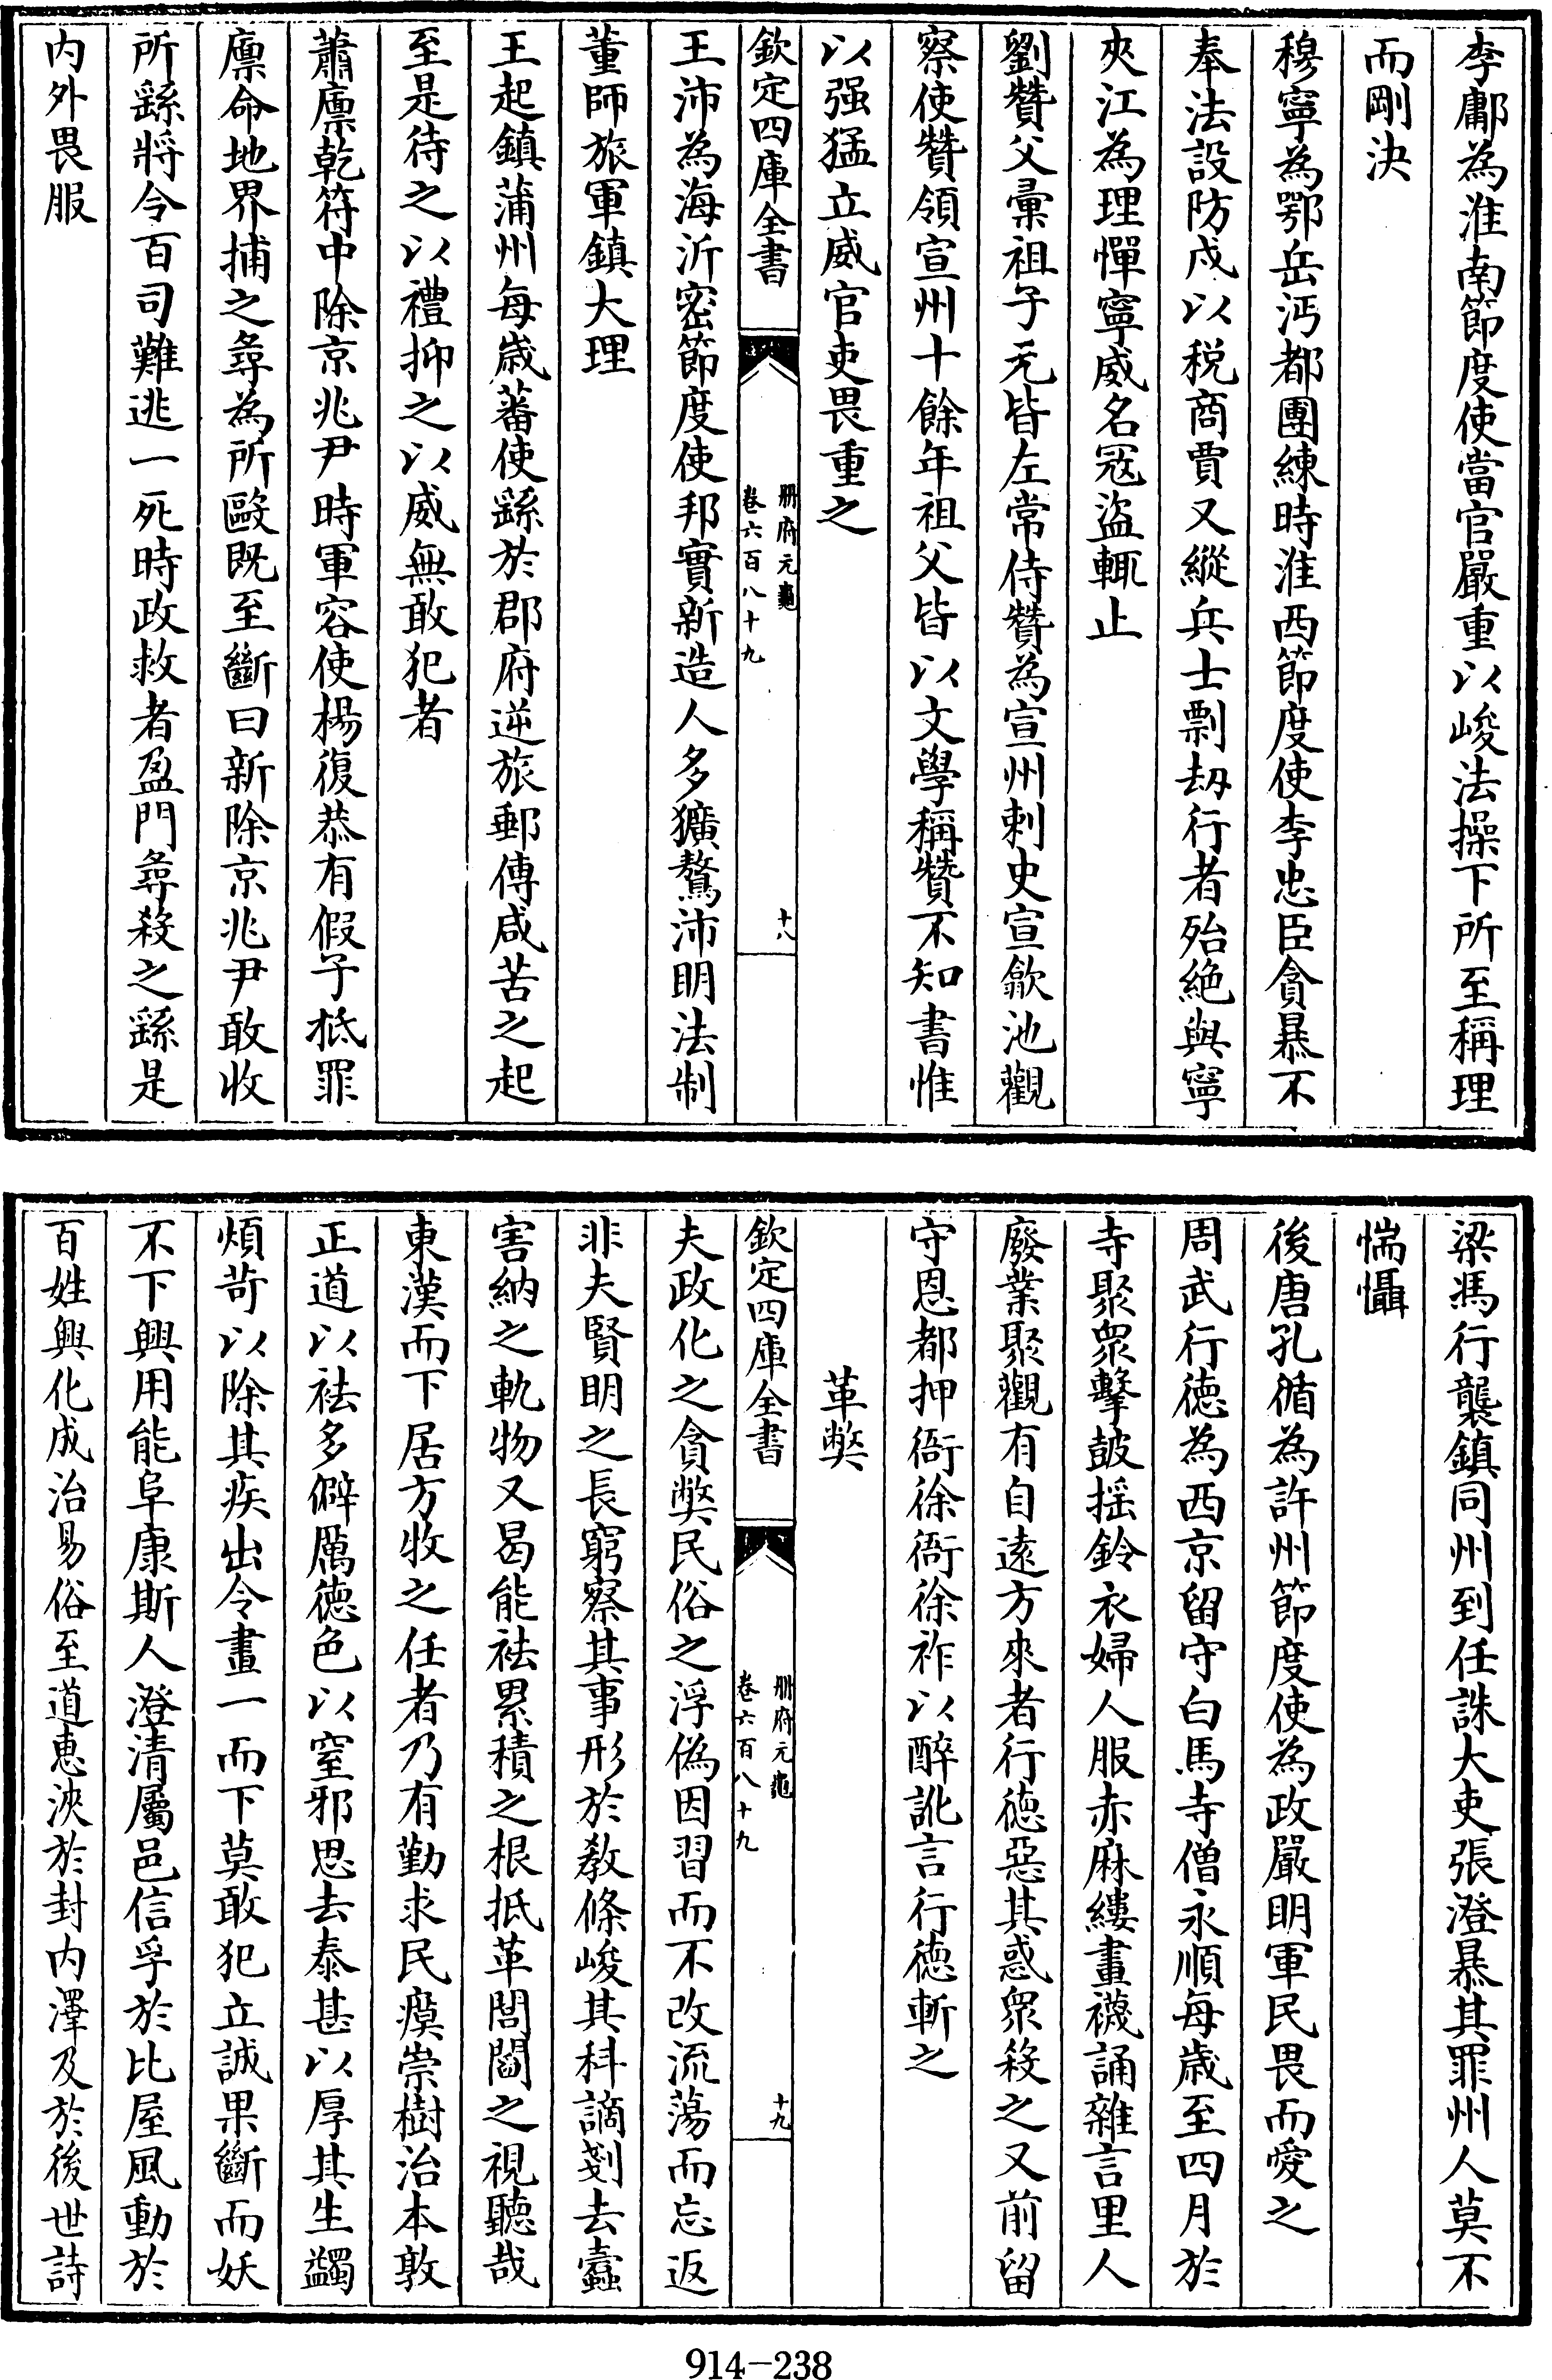 李鄘為淮南節度使當官嚴重以峻法操下所至稱理
而剛決
穆寧為鄂岳沔都團練時淮西節度使李忠臣貪暴不
奉法設防戍以税商賈又縱兵士剽刼行者殆絶與寧
夾江為理憚寧威名冦盜輒止
劉贊父彙祖子元皆左常侍贊為宣州刺史宣歙池觀
察使贊領宣州十餘年祖父皆以文學稱贊不知書惟
以强猛立威官吏畏重之
欽定四庫全書
册府元龜
卷六百八十九
十八
王沛為海沂密節度使邦實新造人多獷驁沛明法制
董師旅軍鎮大理
王起鎮蒲州每歳蕃使繇於郡府逆旅郵傳咸苦之起
至是待之以禮抑之以威無敢犯者
蕭廪乾符中除京兆尹時軍容使楊復恭有假子抵罪
廪命地界捕之尋為所毆既至斷曰新除京兆尹敢收
所繇將令百司難逃一死時政救者盈門尋殺之繇是
内外畏服
梁馮行襲鎮同州到任誅大吏張澄暴其罪州人莫不
惴懾
後唐孔循為許州節度使為政嚴明軍民畏而愛之
周武行徳為西京留守白馬寺僧永順每歳至四月於
寺聚衆擊鼓揺鈴衣婦人服赤麻縷畫襪誦雜言里人
廢業聚觀有自遠方來者行徳惡其惑衆殺之又前留
守恩都押衙徐衙徐祚以醉訛言行徳斬之
革弊
欽定四庫全書
册府元龜
卷六百八十九
十九
夫政化之貪弊民俗之浮偽因習而不改流蕩而忘返
非夫賢明之長窮察其事形於教條峻其科謫剗去蠧
害納之軌物又曷能祛累積之根抵革閭閻之視聽哉
東漢而下居方收之任者乃有勤求民瘼崇樹治本敦
正道以祛多僻厲徳色以窒邪思去泰甚以厚其生蠲
煩苛以除其疾出令畫一而下莫敢犯立誠果斷而妖
不下興用能阜康斯人澄清屬邑信孚於比屋風動於
百姓興化成治易俗至道惠浹於封内澤及於後世詩
914-238